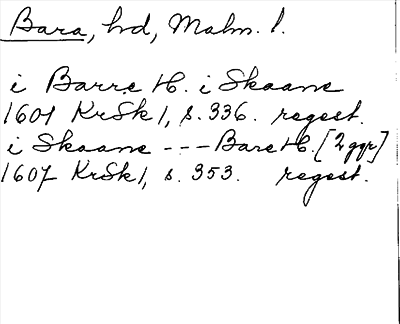 Bara, hd, Malm. l.
i Barre H. i Skaane
1601 KrSk 1, s. 336. regest.
i Skaane --- Bare H. [2 ggr]
1607 KrSk 1, s. 353. regest.